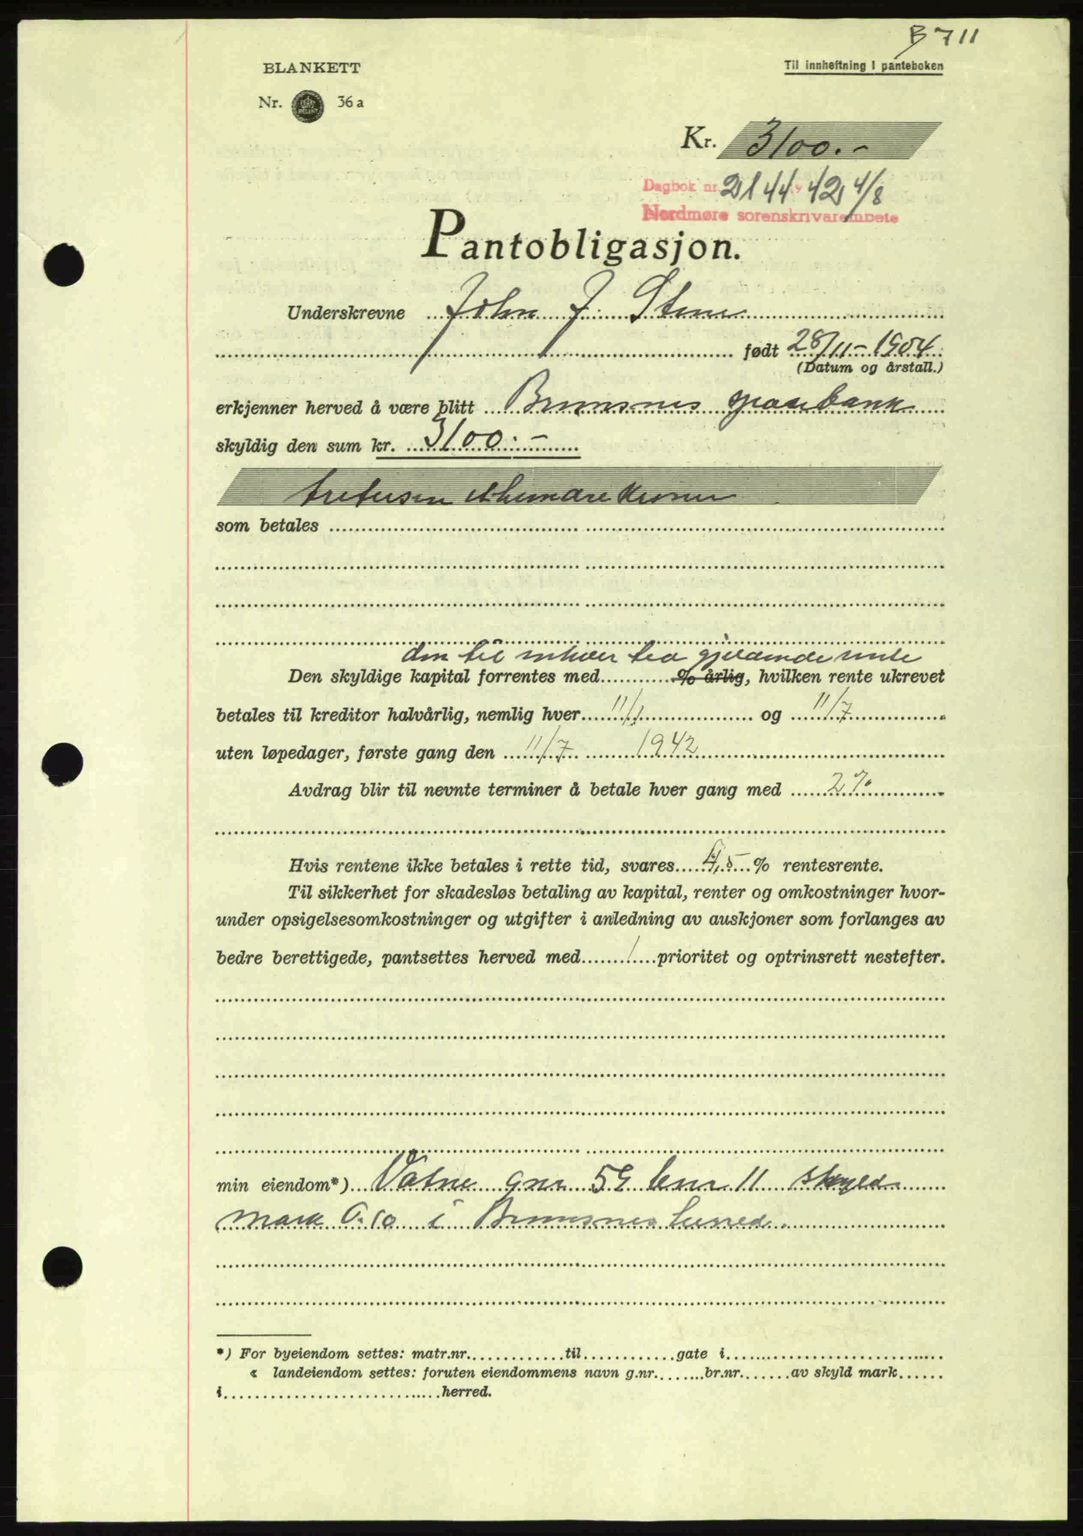 B 711
BLANKETT
Til innheftning i panteboken
Nr. 36a
Kr. 3100.-
Dagbok nr. 2144 42 4/8
Nordmøre sorenskrivarembete
Pantobligasjon.
Underskrevne John J. Stene
født 28/11-1904
(Datum og årstall.)
erkjenner herved å være blitt Bremsnes sparebank
skyldig den sum kr. 3100.-
tretusen ethundre kroner
som betales
den til enhver tid gjeldende rente
Den skyldige kapital forrentes med % årlig, hvilken rente ukrevet
betales til kreditor halvårlig, nemlig hver 11/1 og 11/7
uten løpedager, første gang den 11/7 1942
Avdrag blir til nevnte terminer å betale hver gang med 2%
Hvis rentene ikke betales i rette tid, svares 4,5 % rentesrente.
Til sikkerhet for skadesløs betaling av kapital, renter og omkostninger hvor-
under opsigelsesomkostninger og utgifter i anledning av auskjoner som forlanges av
bedre berettigede, pantsettes herved med 1 prioritet og optrinsrett nestefter.
min eiendom*) Vatne gnr 59 bnr 11 skyld
mark 0.10 i Bremsnes herred.
*) For byeiendom settes: matr.nr. til gate i
« landeiendom settes: foruten eiendommens navn g.nr. br.nr. av skyld mark
i herred.